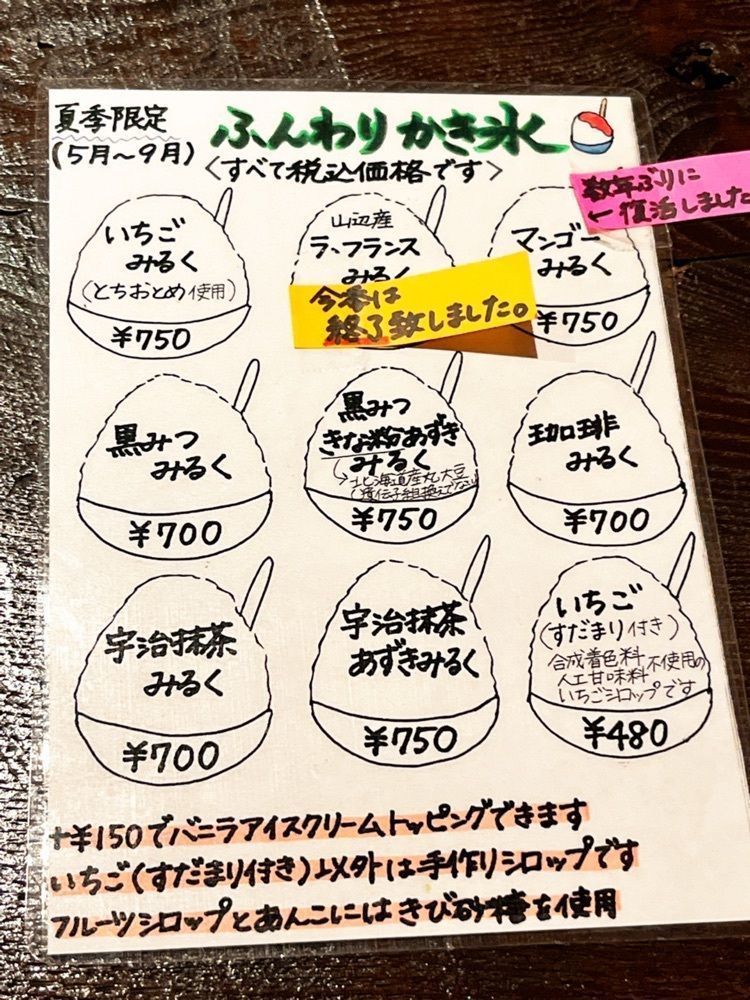 夏季限定
(5月〜9月)
ふんわりかき氷
<すべて税込価格です>
数年ぶりに
←復活しました
いちご
みるく
(とちおとめ使用)
¥750
山辺産
ラ・フランス
みるく
今季は
終了致しました。
マンゴー
みるく
¥750
黒みつ
みるく
¥700
黒みつ
きな粉あずき
みるく
→北海道産丸大豆
(遺伝子組換えでない)
¥750
珈琲
みるく
¥700
宇治抹茶
みるく
¥700
宇治抹茶
あずきみるく
¥750
いちご
(すだまり付き)
合成着色料
人工甘味料
不使用の
いちごシロップです
¥480
+¥150でバニラアイスクリームトッピングできます
いちご(すだまり付き)以外は手作りシロップです
フルーツシロップとあんこにはきび砂糖を使用